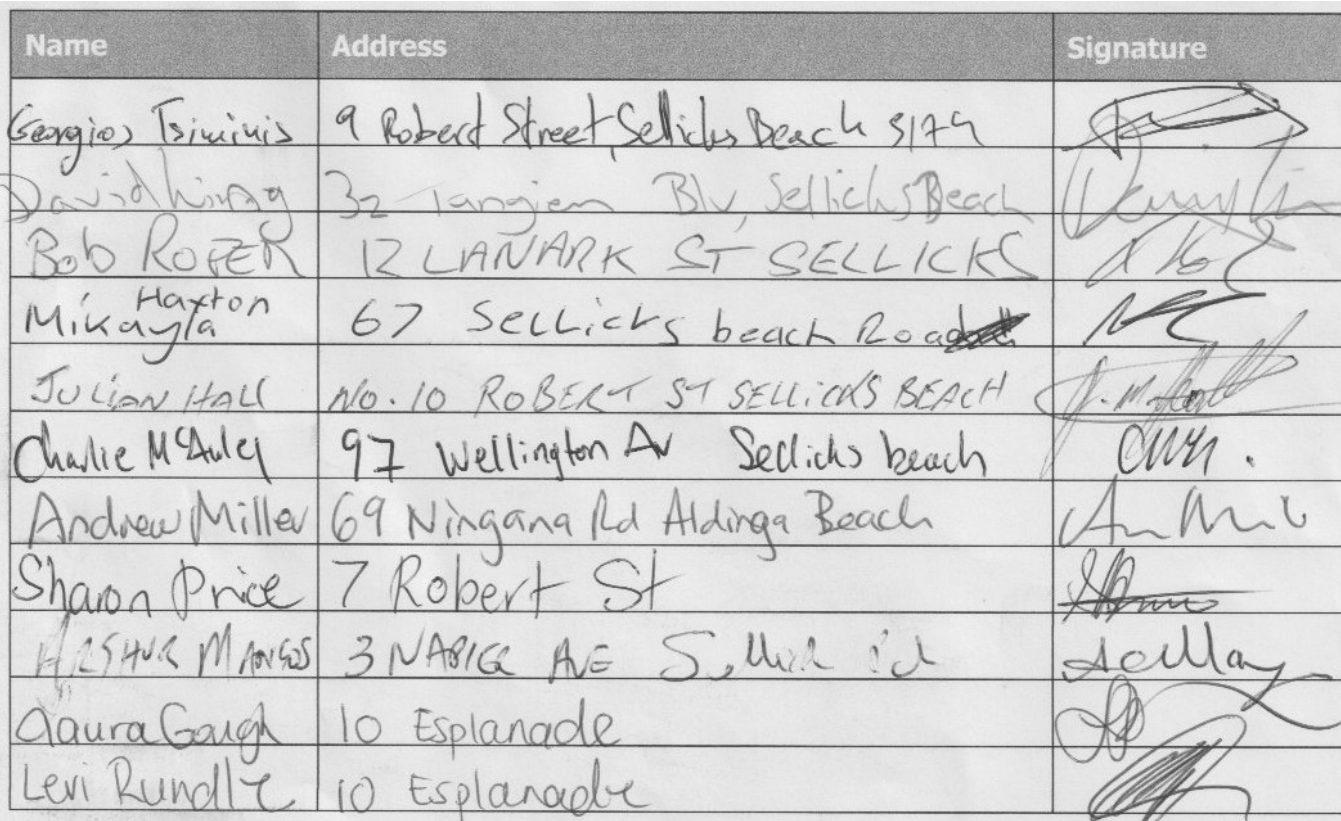 Name Address Signature
Georgios Tsiminis 9 Robert Street, Sellicks Beach 5174
David 32 Blv, Sellicks Beach
Bob 12 LANARK ST SELLICKS
Mikayla Haxton 67 Sellicks beach Road
JULIAN HALL NO. 10 ROBERT ST SELLICKS BEACH
Charlie McAuley 97 Wellington Av Sellicks beach
Andrew Miller 69 Ningana Rd Aldinga Beach
Sharon Price 7 Robert St
3 AVE
Laura Gough 10 Esplanade
Levi Rundle 10 Esplanade